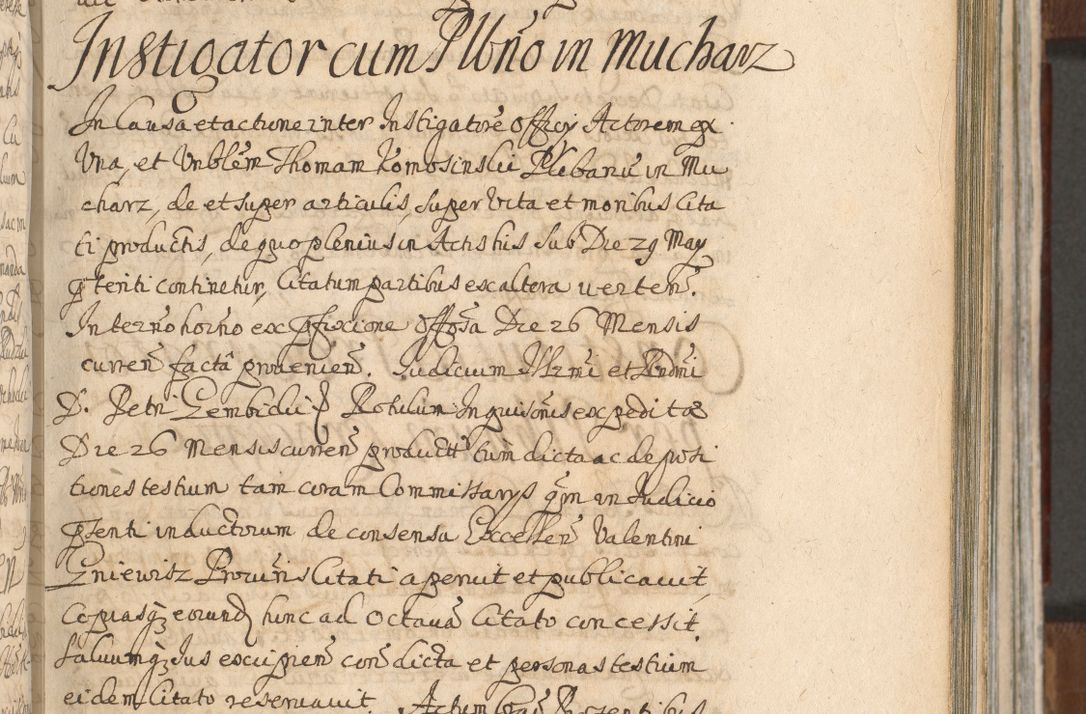 Instigator cum Plbño in Mucharz
In Causa et actione inter Instigatorē Officij Actorem ex
Una, et Vnblēm Thomam Komosinskii Plebanū in Mu
charz, de et super articulis, super vita et moribus Cita
ti productis, de quo plenius in Actis his sub Die 29 May
pteriti continetur, Citatum partibus ex altera verteñ.
In terño horño ex pfixione offosa Die 26 Mensis
curreñ factā provenieñ. Judicium Illrmi et Rndmi
D. Petri Gembicki Rotulum Inquisonis expeditæ
Die 26 Mensis curreñ product tum dicta ac deposi
tiones testium tam coram Commissarys qm in Judicio
psenti inductorum de consensu Excelleñ Valentini
Gniewisz Procuris Citati aperuit et publicavit,
Copiasqz eorund hinc ad Octavā Citato concessit.
Salvumqz Jus excipieñ con dicta et personas testium
eidem Citato reservavit. Actum Præsentibus